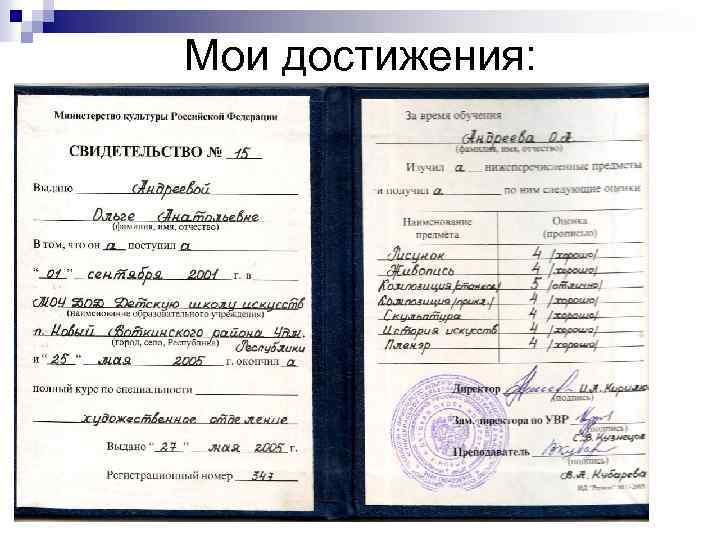 Мои достижения:
Министерство культуры Российской Федерации
СВИДЕТЕЛЬСТВО № 15
Выдано Андреевой
Ольге Анатольевне
(фамилия, имя, отчество)
В том, что он а поступил а
"01" сентября 2001 г. в
МОУ ДОД Детскую школу искусств
(наименование образовательного учреждения)
п. Новый Воткинского района Удм.
(город, село, Республика)
Республики
и "25" мая 2005 г. окончил а
полный курс по специальности
художественное отделение
Выдано "27" мая 2005 г.
Регистрационный номер 347
За время обучения
Андреева О.А
(фамилия, имя, отчество)
Изучил а нижеперечисленные предметы
и получил а по ним следующие оценки
Наименование предмета Оценка (прописью)
Рисунок 4 /хорошо/
Живопись 4 /хорошо/
Композиция/станков/ 5 /отлично/
Композиция/прикл./ 4 /хорошо/
Скульптура 4 /хорошо/
История искусств 4 /хорошо/
Пленэр 4 /хорошо/
Директор И.А. Кирилю
(подпись)
Зам. директора по УВР
(подпись)
С.В. Кузнецов
Преподаватель
(подпись)
В.А. Кубарева